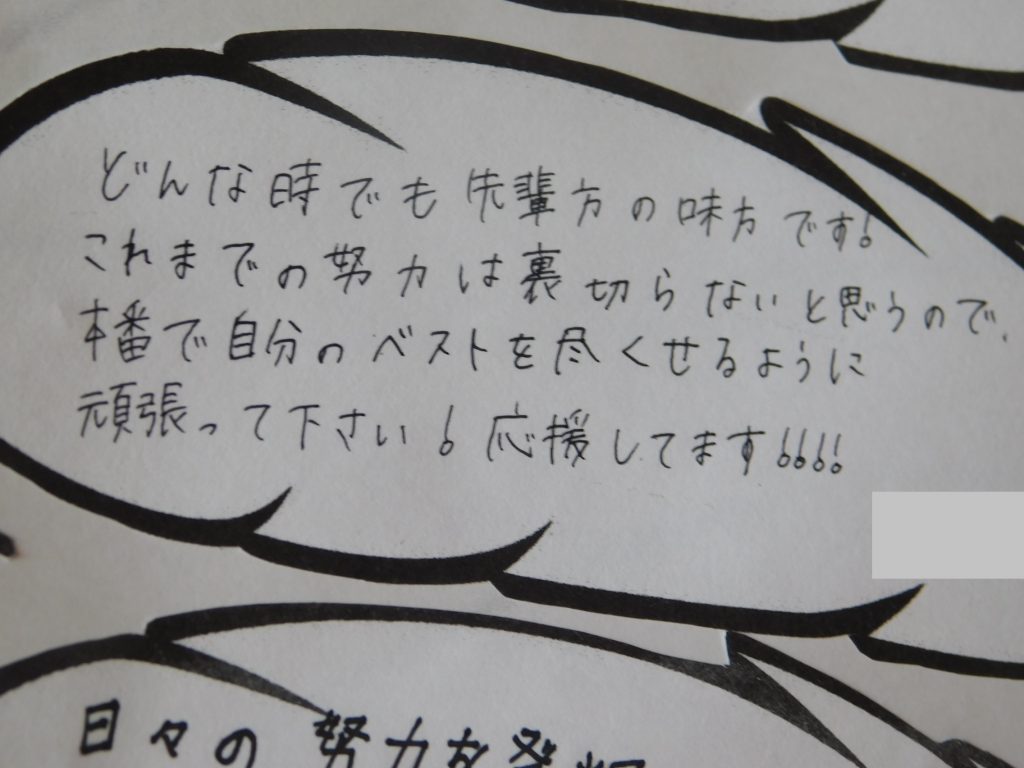 どんな時でも先輩方の味方です!
これまでの努力は裏切らないと思うので、
本番で自分のベストを尽くせるように
頑張って下さい!応援してます!!!!
日々の努力を発揮